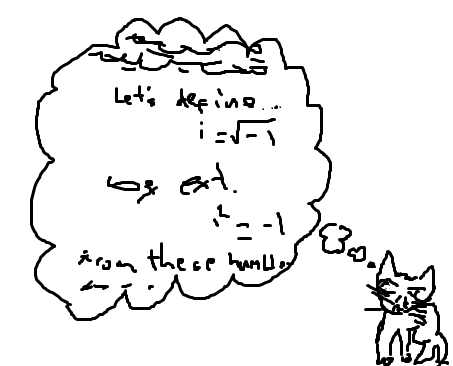 Let's define...
i = √-1
ext.
i² = -1
from these humble